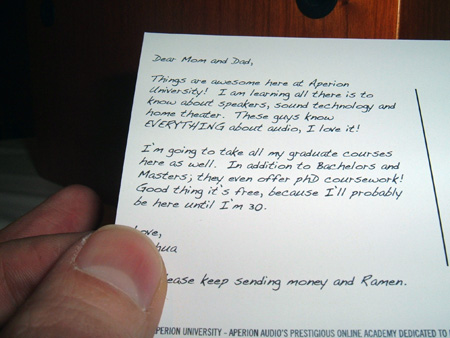 Dear Mom and Dad,
Things are awesome here at Aperion
University! I am learning all there is to
know about speakers, sound technology and
home theater. These guys know
EVERYTHING about audio, I love it!
I'm going to take all my graduate courses
here as well. In addition to Bachelors and
Masters; they even offer phD coursework!
Good thing it's free, because I'll probably
be here until I'm 30.
Love,
please keep sending money and Ramen.
APERION UNIVERSITY - APERION AUDIO'S PRESTIGIOUS ONLINE ACADEMY DEDICATED TO